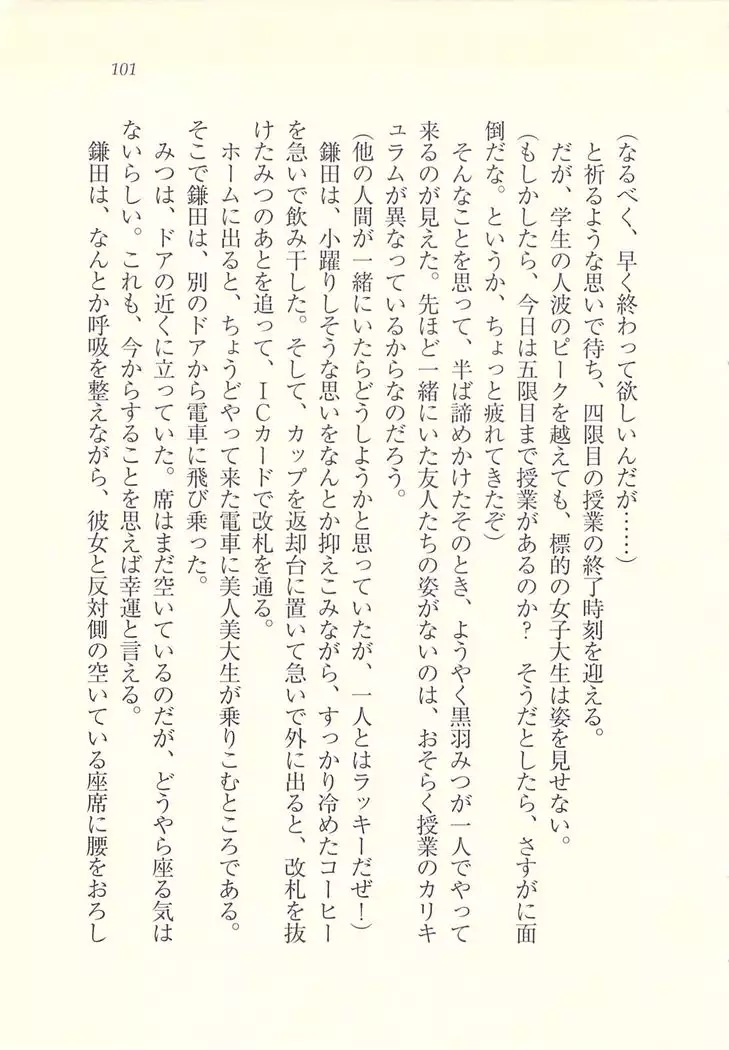 101
(なるべく、早く終わって欲しいんだが……)
と祈るような思いで待ち、四限目の授業の終了時刻を迎える。
だが、学生の人波のピークを越えても、標的の女子大生は姿を見せない。
(もしかしたら、今日は五限目まで授業があるのか? そうだとしたら、さすがに面
倒だな。というか、ちょっと疲れてきたぞ)
そんなことを思って、半ば諦めかけたそのとき、ようやく黒羽みつが一人でやって
来るのが見えた。先ほど一緒にいた友人たちの姿がないのは、おそらく授業のカリキ
ュラムが異なっているからなのだろう。
(他の人間が一緒にいたらどうしようかと思っていたが、一人とはラッキーだぜ!)
鎌田は、小躍りしそうな思いをなんとか抑えこみながら、すっかり冷めたコーヒー
を急いで飲み干した。そして、カップを返却台に置いて急いで外に出ると、改札を抜
けたみつのあとを追って、ICカードで改札を通る。
ホームに出ると、ちょうどやって来た電車に美人美大生が乗りこむところである。
そこで鎌田は、別のドアから電車に飛び乗った。
みつは、ドアの近くに立っていた。席はまだ空いているのだが、どうやら座る気は
ないらしい。これも、今からすることを思えば幸運と言える。
鎌田は、なんとか呼吸を整えながら、彼女と反対側の空いている座席に腰をおろし